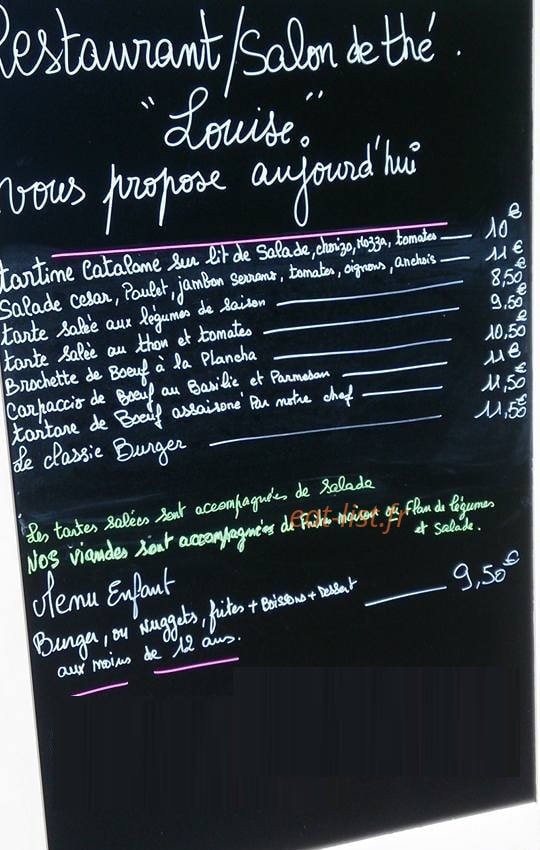 Restaurant/Salon de thé.
"Louise".
vous propose aujourd'hui
tartine Catalane sur lit de Salade, chorizo, Mozza, tomates — 10€
Salade cesar, Poulet, jambon Serrano, tomates, oignons, anchois — 11€
tarte salée aux légumes de saison — 8,50€
tarte salée au thon et tomates — 9,50€
Brochette de Boeuf à la Plancha — 10,50€
Carpaccio de Boeuf au Basilic et Parmesan — 11€
tartare de Boeuf assaisoné Par notre chef — 11,50€
Le classic Burger — 11,50€
Les tartes salées sont accompagnées de Salade
NOS viandes sont accompagnées de frites maison ou Flan de légumes
et Salade.
eat-list.fr
Menu Enfant
Burger, ou Nuggets, frites + Boissons + Dessert — 9,50€
aux moins de 12 ans.